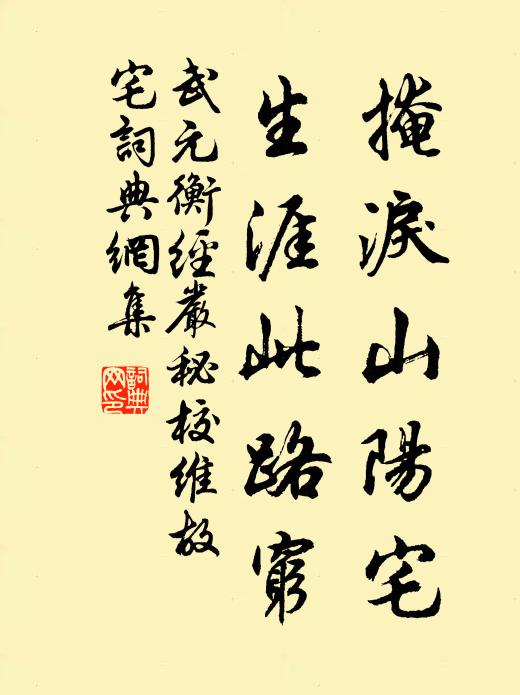 掩淚山陽宅
生涯此路窮
武元衡經嚴秘校維故
宅詞典網集
詞典
网印